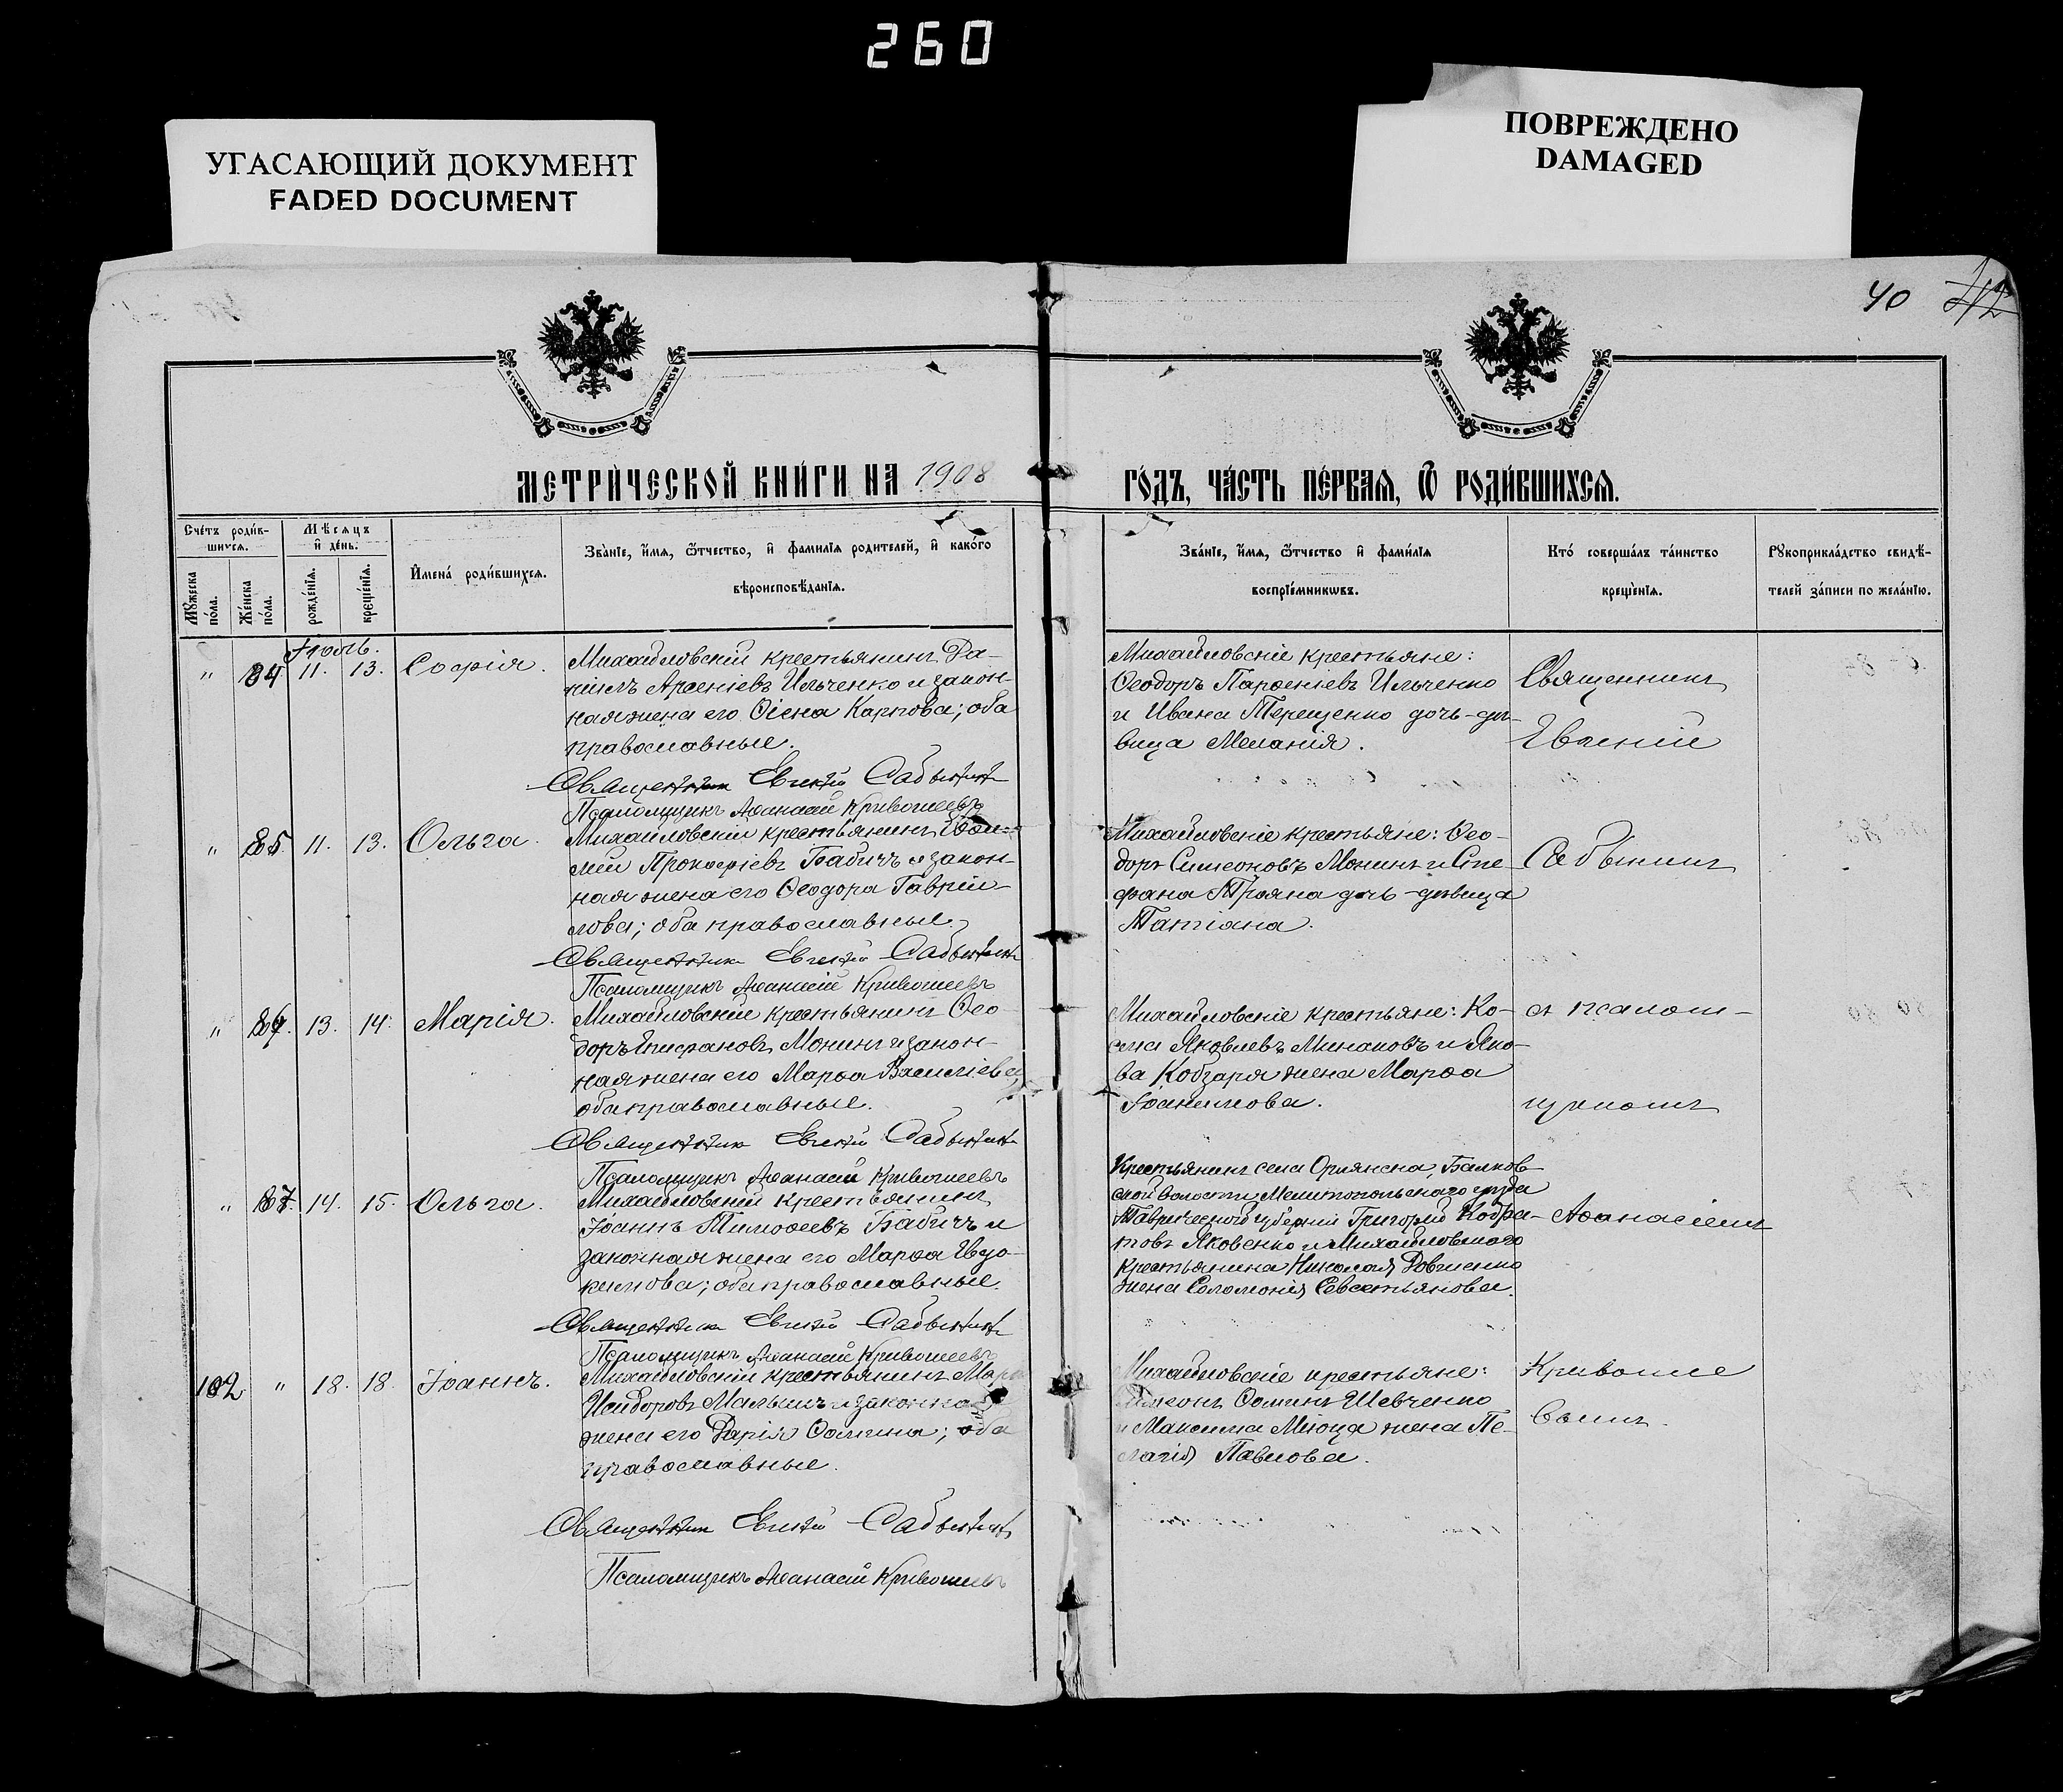 260
УГАСАЮЩИЙ ДОКУМЕНТ
FADED DOCUMENT
ПОВРЕЖДЕНО
DAMAGED
40 42
МЕТРИ́ЧЕСКОЙ КНИ́ГИ НА 1908
ГО́ДЪ, ЧА́СТЬ ПЕ́РВАЯ, Ѿ РОДИ́ВШИХСЯ.
Сче́тъ роди́в-
шихся.
Мѣсяцъ
и де́нь.
Му́жеска по́ла.
Же́нска по́ла.
рожде́нія.
креще́нія.
Имена́ роди́вшихся.
Зва́ніе, и́мя, ѻ́тчество, и фамилія родителей, и како́го
вѣроисповѣ́данія.
Зва́ніе, и́мя, ѻ́тчество и фами́лія
воспріе́мникѡвъ.
Кто́ соверша́лъ та́инство
креще́нія.
Рꙋкоприкла́дство свидѣ́-
телей за́писи по жела́нію.
Іюль.
" 84. 11. 13. Софія.
Михайловскій крестьянинъ Да-
ніилъ Арсеніевъ Ильченко и закон-
ная жена его Елена Карпова; оба
православные.
Священникъ Евгеній Сабынинъ
Псаломщикъ Аѳанасій Кривошеевъ
Михайловскіе крестьяне:
Ѳеодоръ Парѳеніевъ Ильченко
и Ивана Терещенко дочь-дѣ-
вица Меланія.
Священникъ
Евгеній
" 85. 11. 13. Ольга.
Михайловскій крестьянинъ
Прокофіевъ Бабичъ и закон-
ная жена его Ѳеодора Гаврии-
лова; оба православные.
Священникъ Евгеній Сабынинъ
Псаломщикъ Аѳанасій Кривошеевъ
Михайловскіе крестьяне: Ѳео-
доръ Симеоновъ Монинъ и Сте-
фана Трояна дочь-дѣвица
Татіана.
Сабынинъ
" 86. 13. 14. Марія.
Михайловскій крестьянинъ Ѳео-
доръ Епифановъ Монинъ и закон-
ная жена его Марѳа Василіева;
оба православные.
Священникъ Евгеній Сабынинъ
Псаломщикъ Аѳанасій Кривошеевъ
Михайловскіе крестьяне: Ко-
сма Яковлевъ Минаковъ и Яко-
ва Кобзаря жена Марѳа
Іоакимова.
съ псалом-
щикомъ
" 87. 14. 15. Ольга.
Михайловскій крестьянинъ
Іоаннъ Тимоѳеевъ Бабичъ и
законная жена его Марѳа Евдо-
кимова; оба православные.
Священникъ Евгеній Сабынинъ
Псаломщикъ Аѳанасій Кривошеевъ
Крестьянинъ села Орлянска, Балков-
ской волости, Мелитопольскаго уѣзда
Таврической губерніи Григорій Кодра-
товъ Яковенко и Михайловскаго
крестьянина Николая Довженко
жена Соломонія Севастьянова.
Аѳанасіемъ
102 " 18. 18. Іоаннъ.
Михайловскій крестьянинъ
Исидоровъ Малышъ и законная
жена его Дарія Ѳомина; оба
православные.
Священникъ Евгеній Сабынинъ
Псаломщикъ Аѳанасій Кривошеевъ
Михайловскіе крестьяне:
Симеонъ Ѳоминъ Шевченко
и Максима жена Пе-
лагія Павлова.
Кривоше
вымъ.